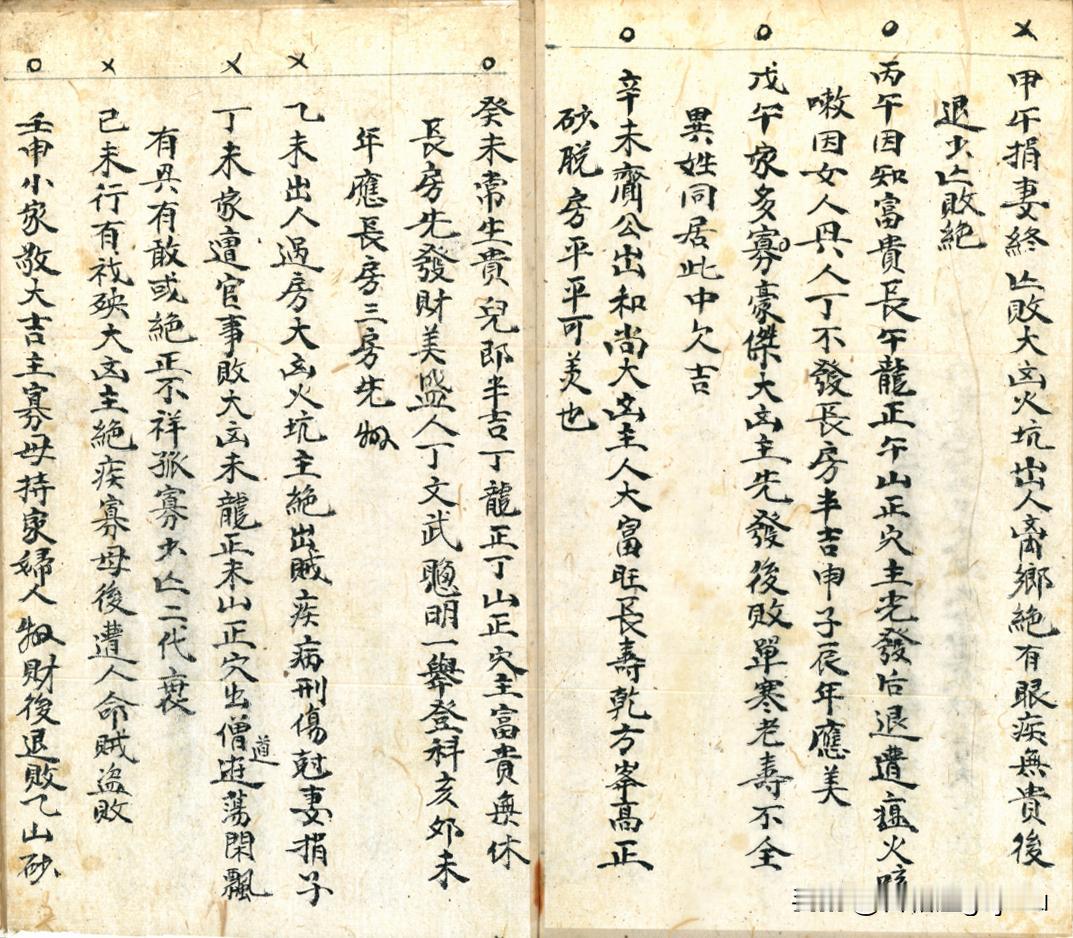 甲午捐妻終亾敗大凶火坑出人离鄉絶有眼疾無貴後
退少亾敗絶
丙午因知富貴長午龍正午山正穴主先發后退遭瘟火
嗽因女人與人丁不發長房半吉申子辰年應美
戊午家多寡豪傑大凶主先發後敗單寒老壽不全
異姓同居此中欠吉
辛未齋公出和尚大凶主人大富旺長壽乾方峯高正
砂脱房平平可羙也
癸未常生貴兒郎半吉丁龍正丁山正穴主富貴無休
長房先發財美盛人丁文武聰明一舉登科亥卯未
年應長房三房先
乙未出人過房大凶火坑主絶出賊疾病刑傷尅妻捐子
丁未家遭官事敗大凶未龍正未山正穴出僧道遊蕩閑飄
有與有敢或絶正不祥孤寡少亾二代衰
己未行有殃大凶主絶疾寡母後遭人命賊盗敗
壬申小家敬大吉主寡母持家婦人財後退敗乙山砂